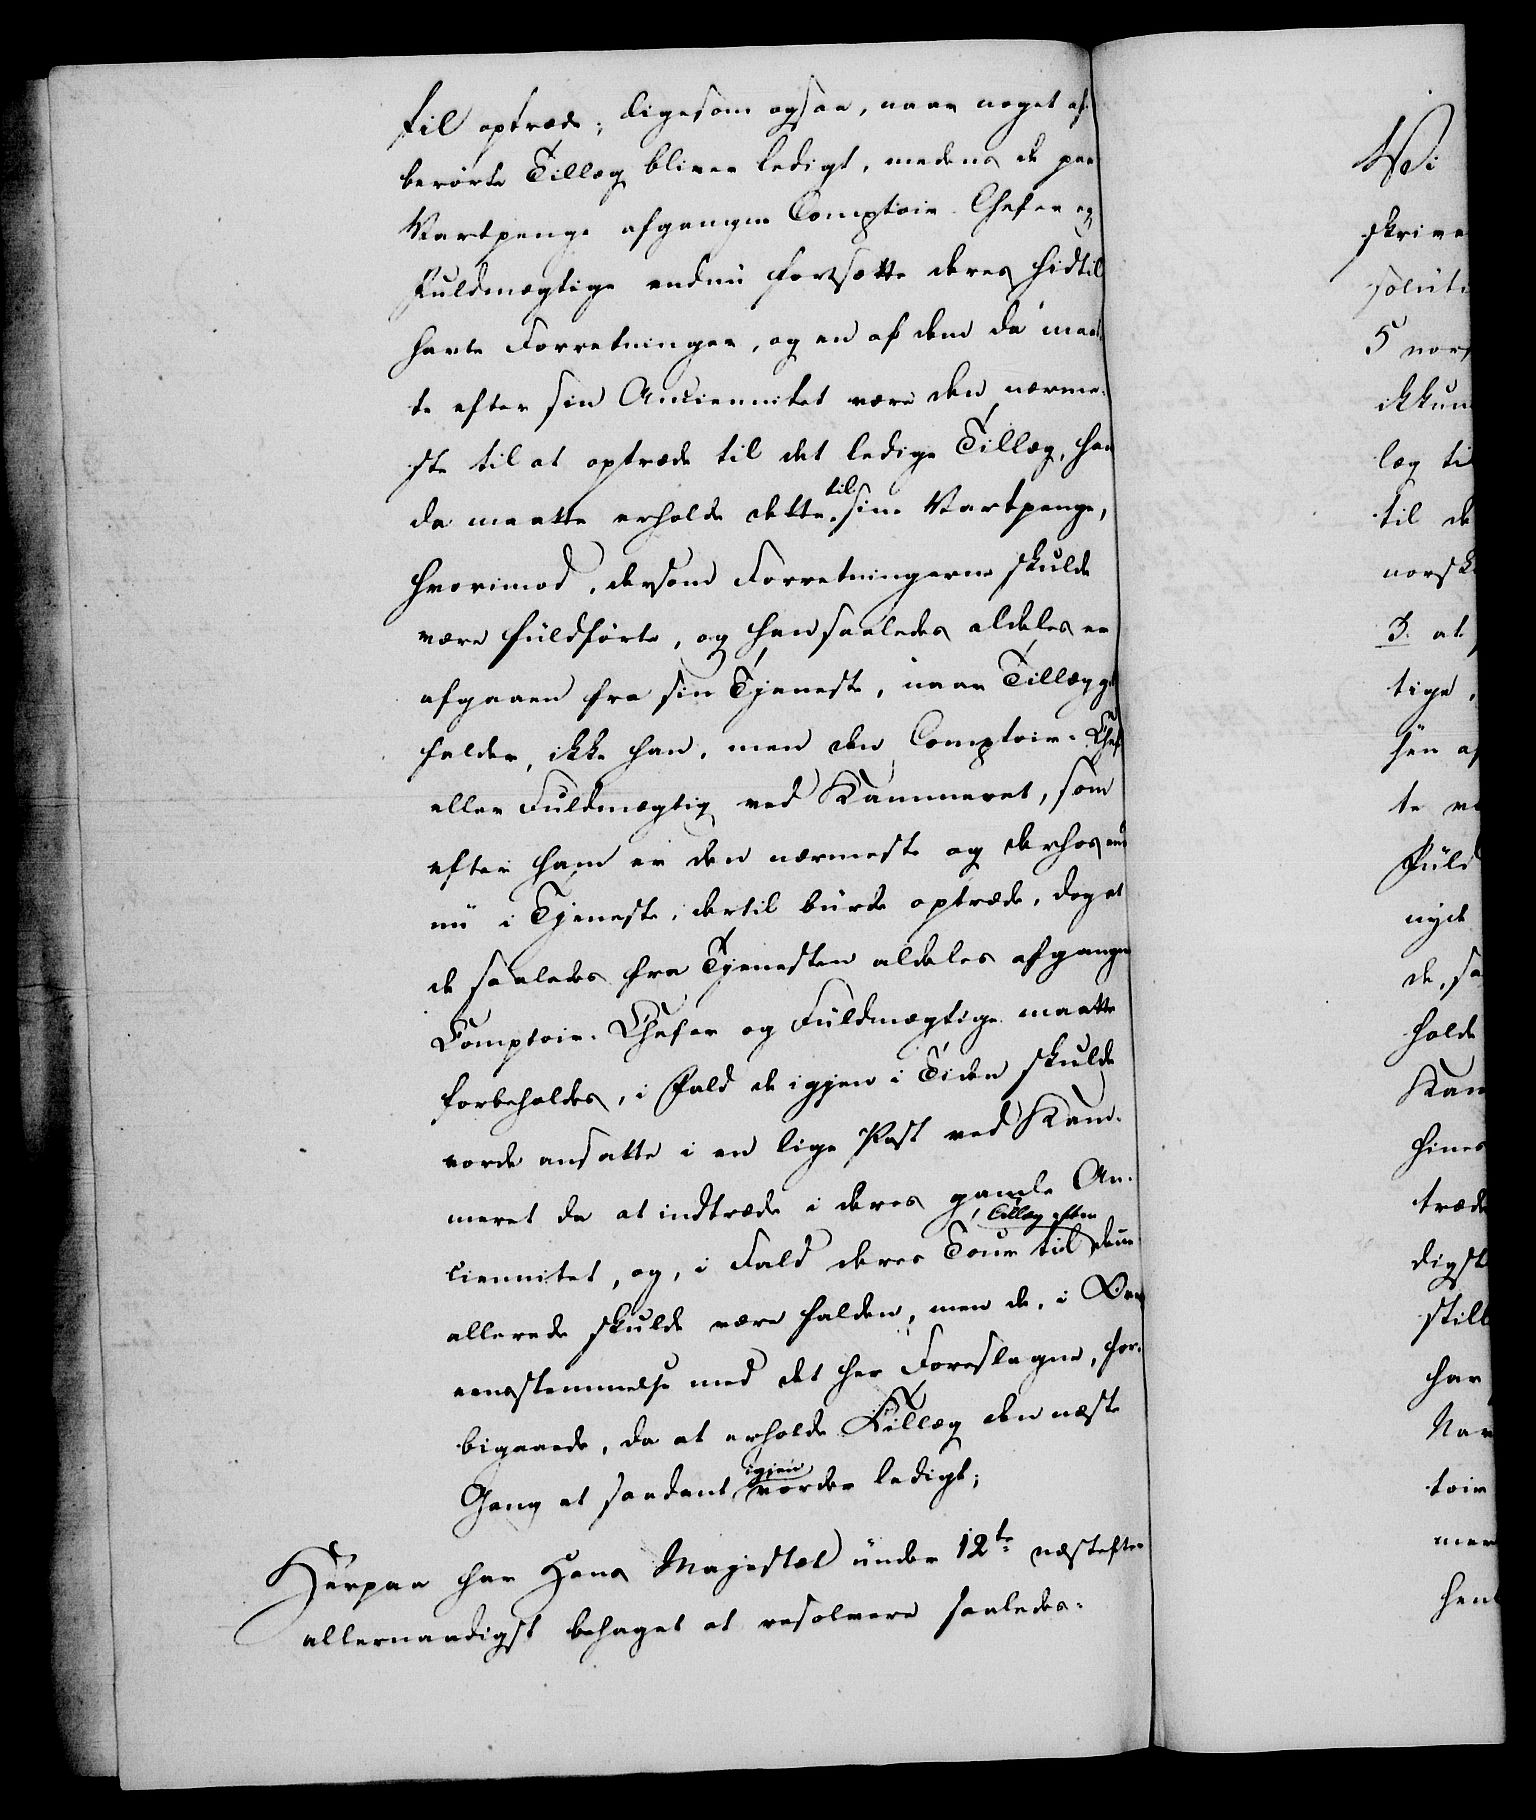 til optræde; ligesom ogsaa, naar noget af
berørte Tillæg bliver ledigt, medens de paa
Vartpenge afgangne Comptoir-Chefer og
Fuldmægtige endnu fortsætte deres hidtil
havte Forretninger, og en af dem da maat
te efter sin Anciennitet være den nærme-
ste til at optræde til det ledige Tillæg, han
da maatte erholde dette til sine Vartpenge,
hvorimod, dersom Forretningerne skulde
være fuldførte, og han saaledes aldeles er
afgaaen fra sin Tjeneste, naar Tillægget
falder, ikke han, men den Comptoir-Chef
eller Fuldmægtig ved Kammeret, som
efter ham er den nærmeste og derhos end
nu i Tjeneste, dertil burde optræde, dog at
de saaledes fra Tjenesten aldeles afgangne
Comptoir-Chefer og Fuldmægtige maatte
forbeholdes, i Fald de igjen i Tiden skulde
vorde ansatte i en lige Post ved Kam-
meret da at indtræde i deres gamle An-
ciennitet, og, i Fald deres Tour til Tillæg efter denne
allerede skulde være falden, men de, i Over
eensstemmelse med det her Foreslagne, for-
bigaaede, da at erholde Tillæg den næste
Gang et saadant igjen vorder ledigt;
Herpaa har Hans Majestæt under 12te næstefter
allernaadigst behaget at resolvere saaledes:
Vi
skrive
solut
5 nors
ikkun
læg til
til de
norsk
3. at
tige,
hen af
te ve
Fuld
nyde
de, sa
holde
Kam
hines
træde
digst
still
har
Nav
toir
mer
hen